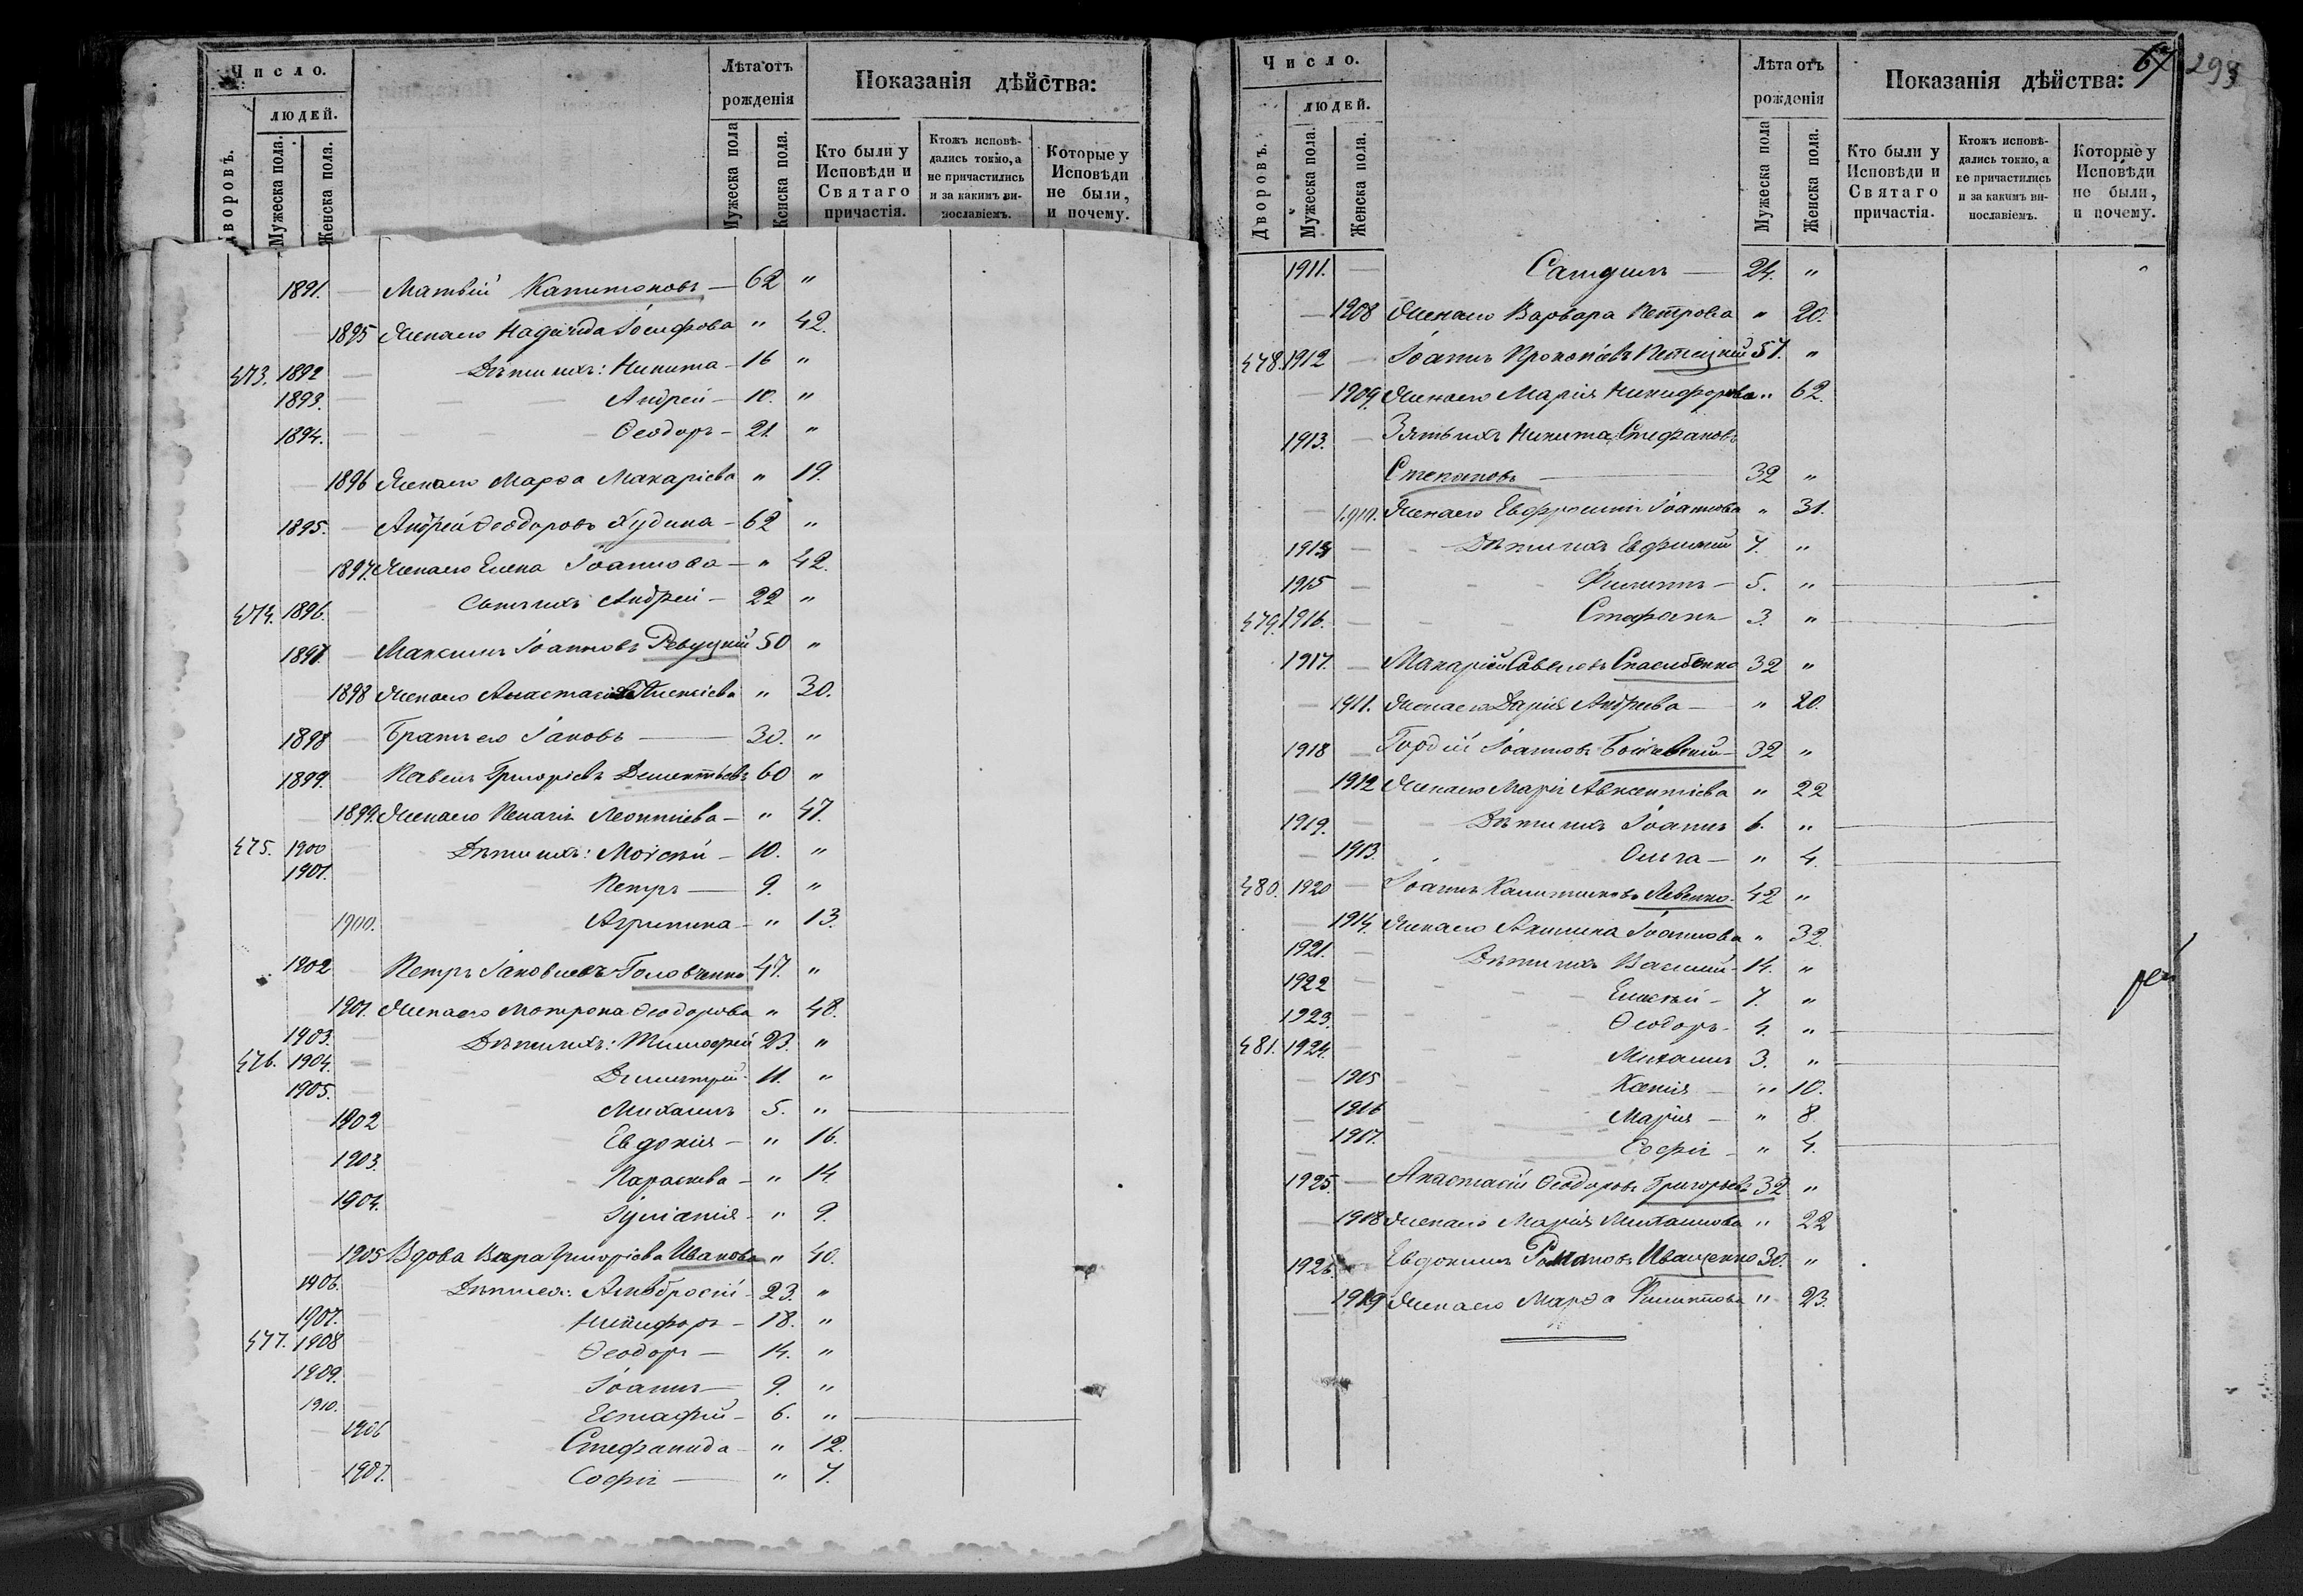 Число.
людей.
Дворовъ.
Мужеска пола.
Женска пола.
Лѣта отъ рожденія
Мужеска пола
Женска пола.
Показанія дѣйства:
Кто были у Исповѣди и Святаго причастія.
Ктожъ исповѣдались токмо, а не причастились и за какимъ винословіемъ.
Которые у Исповѣди не были, и почему.
1891. Матвій Капитоновъ — 62 "
1895 Жена его Надежда Іосифова " 42.
473. 1892 Дѣти ихъ: Никита — 16 "
1893. Андрей — 10. "
1894. Ѳеодоръ — 21. "
1896 Жена его Марѳа Макаріева " 19.
1895. Андрей Ѳеодоровъ Худина — 62 "
1897. Жена его Елена Іоаннова — " 42.
474. 1896. Сынъ ихъ Андрей — 22 "
1897. Максимъ Іоанновъ Ревуцкій 50 "
1898 Жена его Анастасія " 30.
1898 Братъ его Іаковъ — 30. "
1899. Павелъ Григоріевъ Дементьевъ 60 "
1899. Жена его Пелагія Леонтіева — " 47.
475. 1900 Дѣти ихъ: Моісей — 10. "
1901. Петръ — 9. "
1900. Агрипина — " 13.
1902 Петръ Іаковлевъ Головченко 47. "
1901. Жена его Мотрона Ѳеодорова " 48.
1903. Дѣти ихъ: Тимоѳей 23. "
476. 1904. Димитрій — 11. "
1905. Михаилъ 5. "
1902 Евдокія — " 16.
1903. Параскева — " 14
1904. Іуліанія — " 9.
1905 Вдова Вѣра Григоріева Иванова " 40.
1906. Дѣти ея: Амвросій — 23. "
1907. Никифоръ — 18. "
477. 1908 Ѳеодоръ — 14. "
1909. Іоаннъ — 9. "
1910. Естафій — 6. "
1906 Стефанида — " 12.
1907. Софія — " 7.
67 293
Число.
людей.
Дворовъ.
Мужеска пола.
Женска пола.
Лѣта отъ рожденія
Мужеска пола
Женска пола.
Показанія дѣйства:
Кто были у Исповѣди и Святаго причастія.
Ктожъ исповѣдались токмо, а не причастились и за какимъ винословіемъ.
Которые у Исповѣди не были, и почему.
1911. — 24. "
1908 Жена его Варвара Петрова " 20.
478. 1912 Іоаннъ Прокопіевъ 57. "
1909. Жена его Марія Никифорова " 62.
1913. Зять ихъ Никита Стефановъ
Степановъ — 32 "
1910. Жена его Евфросинія Іоаннова " 31.
1914 Дѣти ихъ Евфимій 7. "
1915 Филиппъ — 5. "
479. 1916. Стефанъ 3. "
1917. Макарій Савеловъ Спасибенко 32 "
1911. Жена его Дарія Андреева — " 20.
1918 Гордій Іоанновъ 32 "
1912 Жена его Марія Авксентіева " 22
1919. Дѣти ихъ Іоаннъ 6. "
1913. Ольга — " 4.
480. 1920 Іоаннъ Капитоновъ Левенко 42 "
1914. Жена его Акилина Іоаннова " 32.
1921. Дѣти ихъ Василій — 14. "
1922 Елисѣй — 7. "
1923. Ѳеодоръ — 4. "
481. 1924. Михаилъ 3. "
1915 Ксенія — " 10.
1916 Марія — " 8.
1917. Софія — " 4.
1925. Анастасій Ѳеодоровъ Григорьевъ 32 "
1918 Жена его Марія Михаилова " 22
1926. Евдокимъ Романовъ Иващенко 30. "
1919 Жена его Марѳа Филиппова " 23.
рей